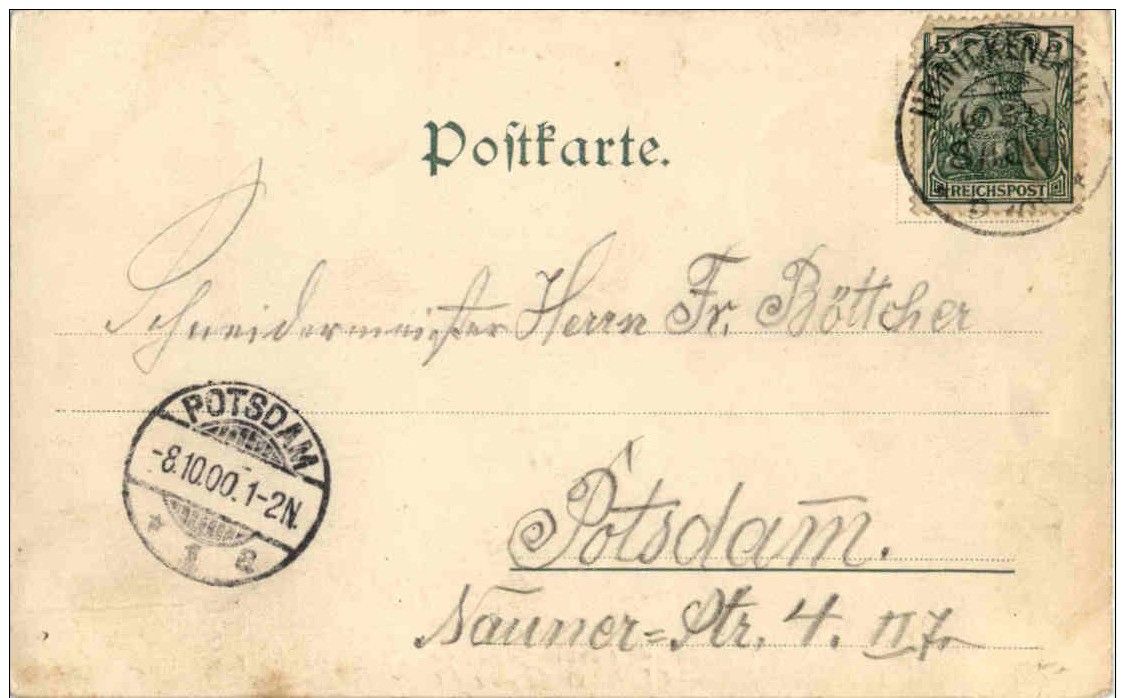 5 5
REICHSPOST
Postkarte.
Schneidermeister Herrn Fr. Böttcher
POTSDAM
-8.10.00. 1-2N.
* 1 a
Potsdam.
Nauner=Str. 4. II